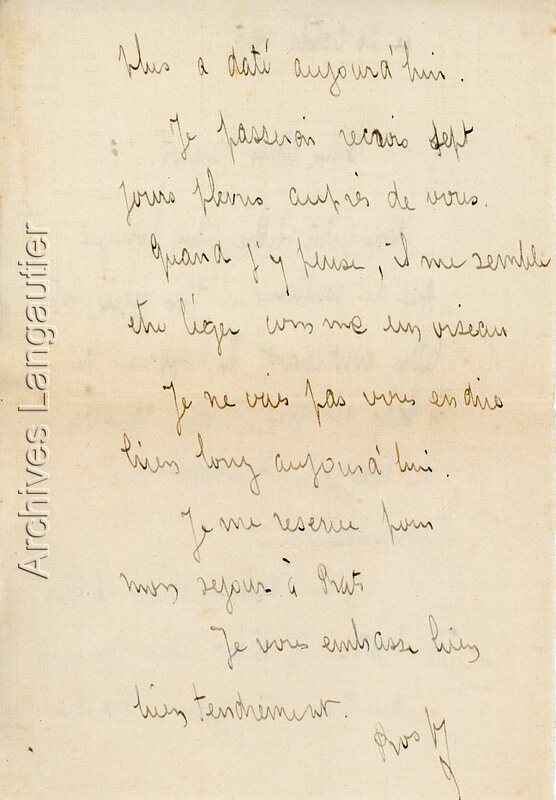 plus a daté aujourd'hui.
Je passerai sept
jours pleins auprès de vous.
Quand j'y pense, il me semble
etre léger comme un oiseau
Je ne vais pas vous en dire
bien long aujourd'hui.
Je me reserve pour
mon sejour à Prats
Je vous embrasse bien
bien tendrement.
Archives Langautier